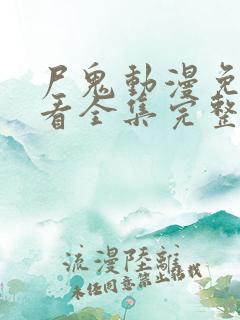 尸鬼動漫免
看全集完整
流漫陸離
未任同意禁止搭我